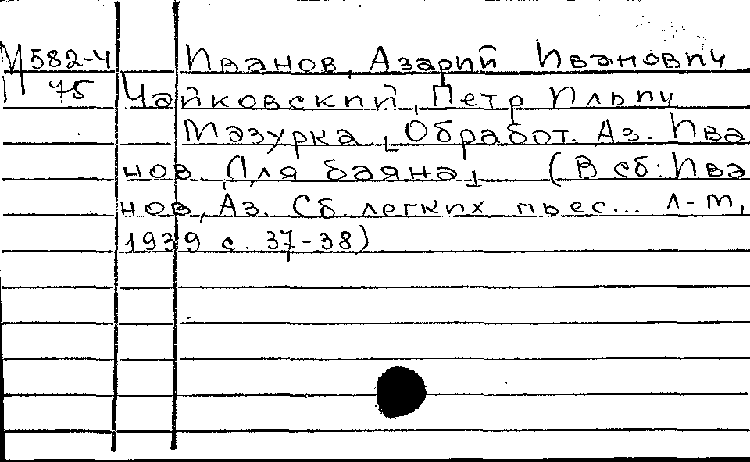 М582-4 Иванов, Азарий Иванович
П 75 Чайковский, Петр Ильич
Мазурка [Обработ. Аз. Ива
нов. Для баяна] (В сб: Ива
нов, Аз. Сб. легких пьес... Л-М,
1939 с. 37-38)